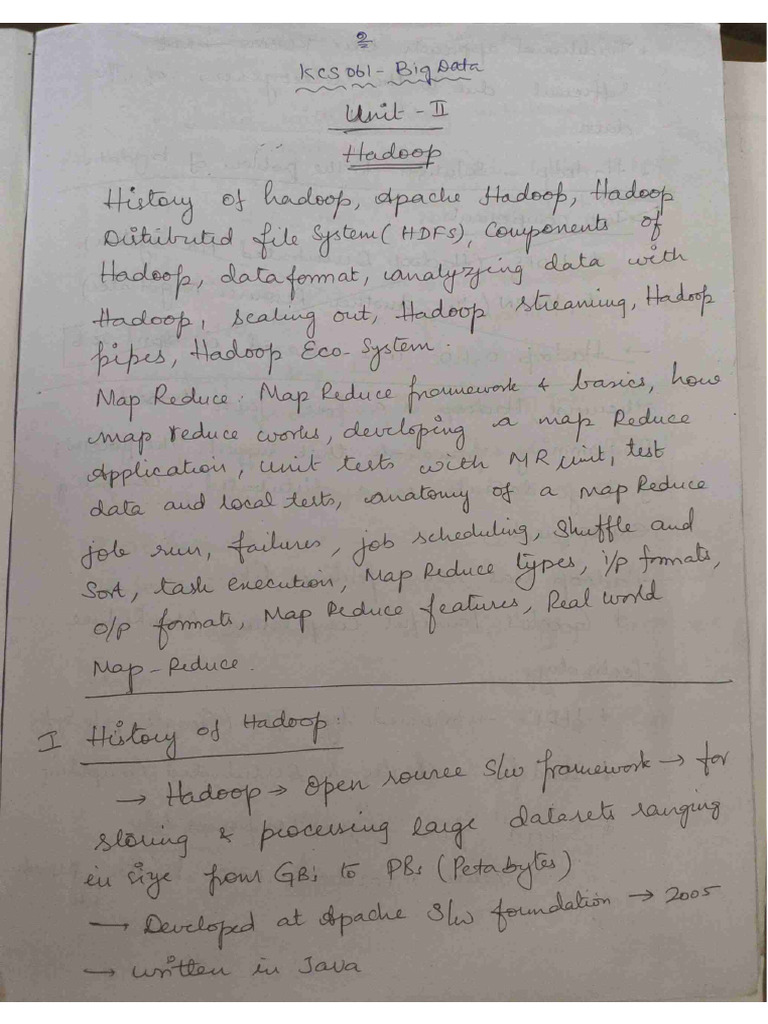 2
KCS061 - Big Data
Unit - II
Hadoop
History of hadoop, Apache Hadoop, Hadoop
Distributed file System (HDFS), Components of
Hadoop, data format, analyzing data with
Hadoop, scaling out, Hadoop streaming, Hadoop
pipes, Hadoop Eco-System.
Map Reduce: Map Reduce framework & basics, how
map reduce works, developing a map Reduce
Application, unit tests with MR unit, test
data and local tests, anatomy of a map Reduce
job run, failures, job scheduling, shuffle and
sort, task execution, Map Reduce types, i/p formats,
o/p formats, Map Reduce features, Real world
Map-Reduce.
I History of Hadoop:
→ Hadoop → open source S/w framework → for
storing & processing large datasets ranging
in size from GBs to PBs (Petabytes)
→ Developed at Apache S/w foundation → 2005
→ written in Java